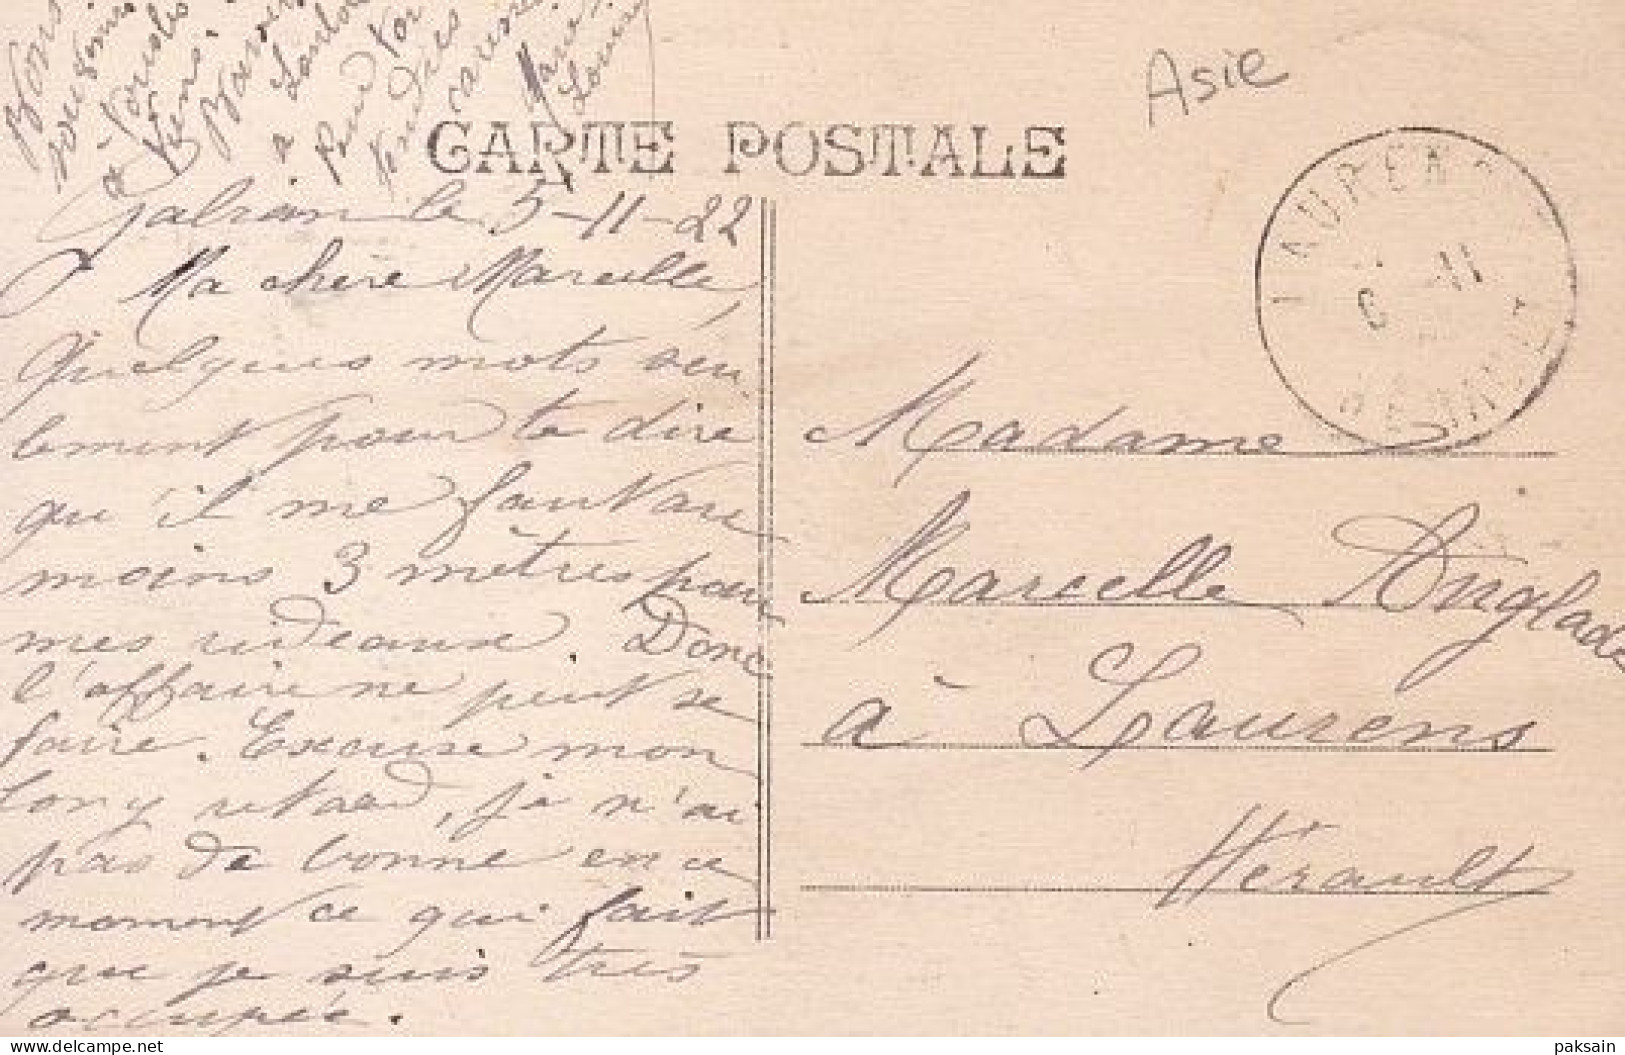 Asie
CARTE POSTALE
LAURENS
6 11
HERAULT
Gabian le 5-11-22
Ma chère Marcelle,
Quelques mots seu
lement pour te dire
qu'il me faut au
moins 3 mètres pour
mes rideaux. Donc
l'affaire ne peut se
faire. Excuse mon
long retard, je n'ai
pas de bonne en ce
moment ce qui fait
que je suis très
occupée.
Bons
souvenirs
à tous les
tiens.
Bonjour
à
caresses
Marie
Louise
Madame
Marcelle Anglade
à Laurens
Hérault
delcampe.net
paksain